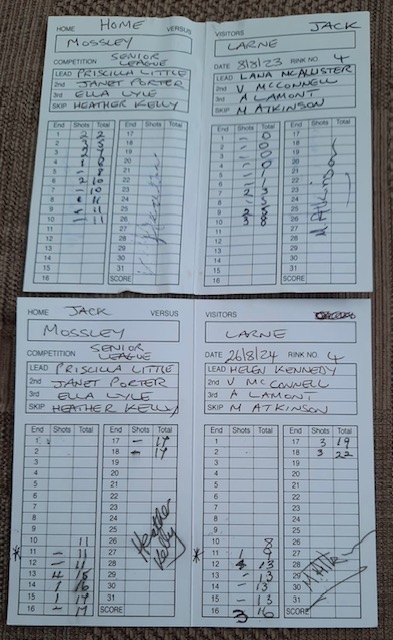 HOME HOME VERSUS
MOSSLEY
COMPETITION SENIOR LEAGUE
LEAD PRISCILLA LITTLE
2nd JANET PORTER
3rd ELLA LYLE
SKIP HEATHER KELLY
End Shots Total End Shots Total
1 2 2 17
2 18
3 19
4 20
5 21
6 2 10 22
7 - 10 23
8 24
9 11 25
10 11 26
11 27
12 28
13 29
14 30
15 31
16 SCORE
VISITORS JACK
LARNE
DATE 8/8/23 RINK NO. 4
LEAD LANA McALISTER
2nd V McCONNELL
3rd A LAMONT
SKIP M ATKINSON
End Shots Total End Shots Total
1 - 0 17
2 - 0 18
3 - 0 19
4 - 0 20
5 21
6 22
7 23
8 24
9 25
10 3 8 26
11 27
12 28
13 29
14 30
15 31
16 SCORE
M Atkinson
HOME JACK VERSUS
MOSSLEY
COMPETITION SENIOR LEAGUE
LEAD PRISCILLA LITTLE
2nd JANET PORTER
3rd ELLA LYLE
SKIP HEATHER KELLY
End Shots Total End Shots Total
1 17 - 17
2 18 - 17
3 19
4 20
5 21
6 22
7 23
8 24
9 25
10 11 26
* 11 - 11 27
12 - 11 28
13 4 15 29
14 1 16 30
15 1 17 31
16 - 17 SCORE
Heather Kelly
VISITORS
LARNE
DATE 26/8/24 RINK NO. 4
LEAD HELEN KENNEDY
2nd V McCONNELL
3rd A LAMONT
SKIP M ATKINSON
End Shots Total End Shots Total
1 17 3 19
2 18 3 22
3 19
4 20
5 21
6 22
7 23
8 24
9 25
10 8 26
* 11 1 9 27
12 4 13 28
13 - 13 29
14 - 13 30
15 - 13 31
16 3 16 SCORE